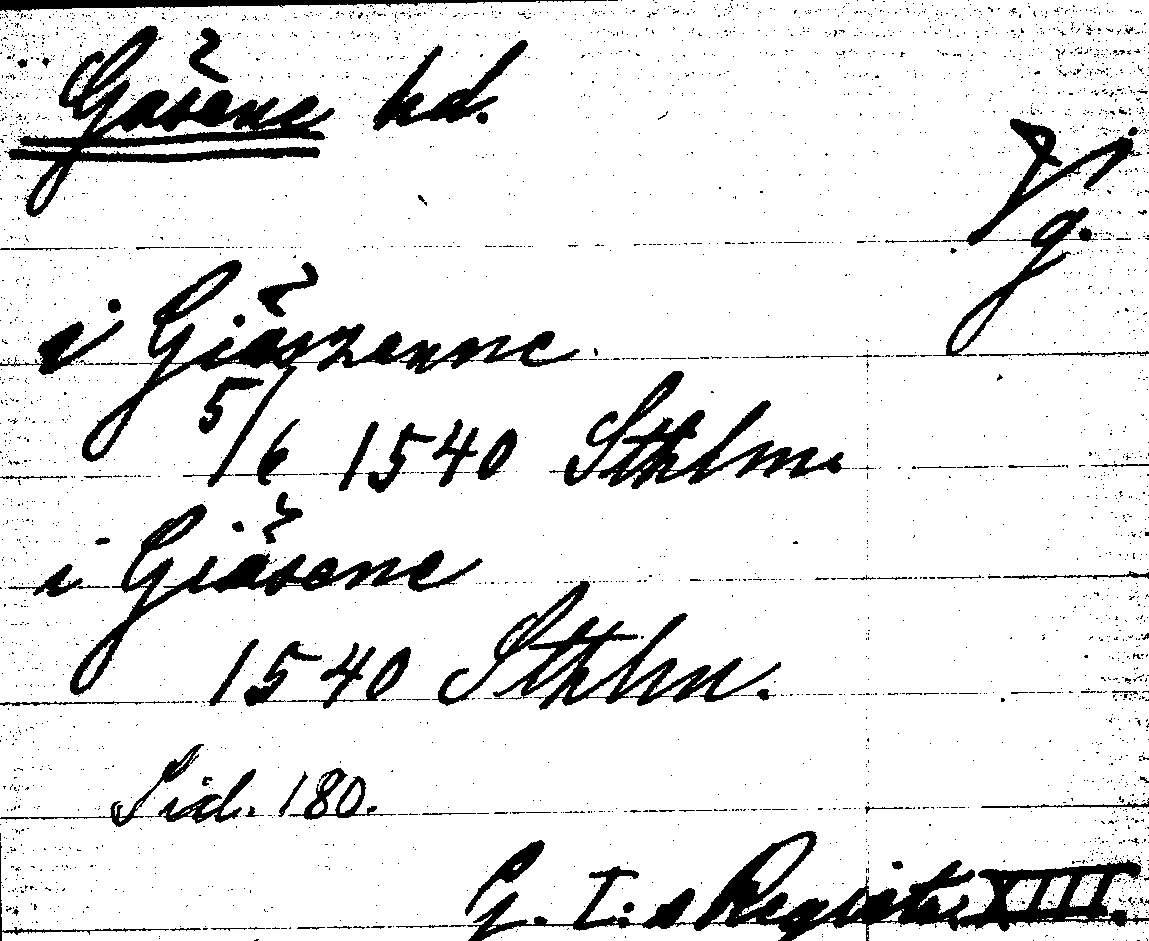 Gäsene hd.
Vg.
i Giäszenne
5/6 1540 Sthlm.
i Giäsene
1540 Sthlm.
Sid. 180.
G. I:s Registr. XIII.